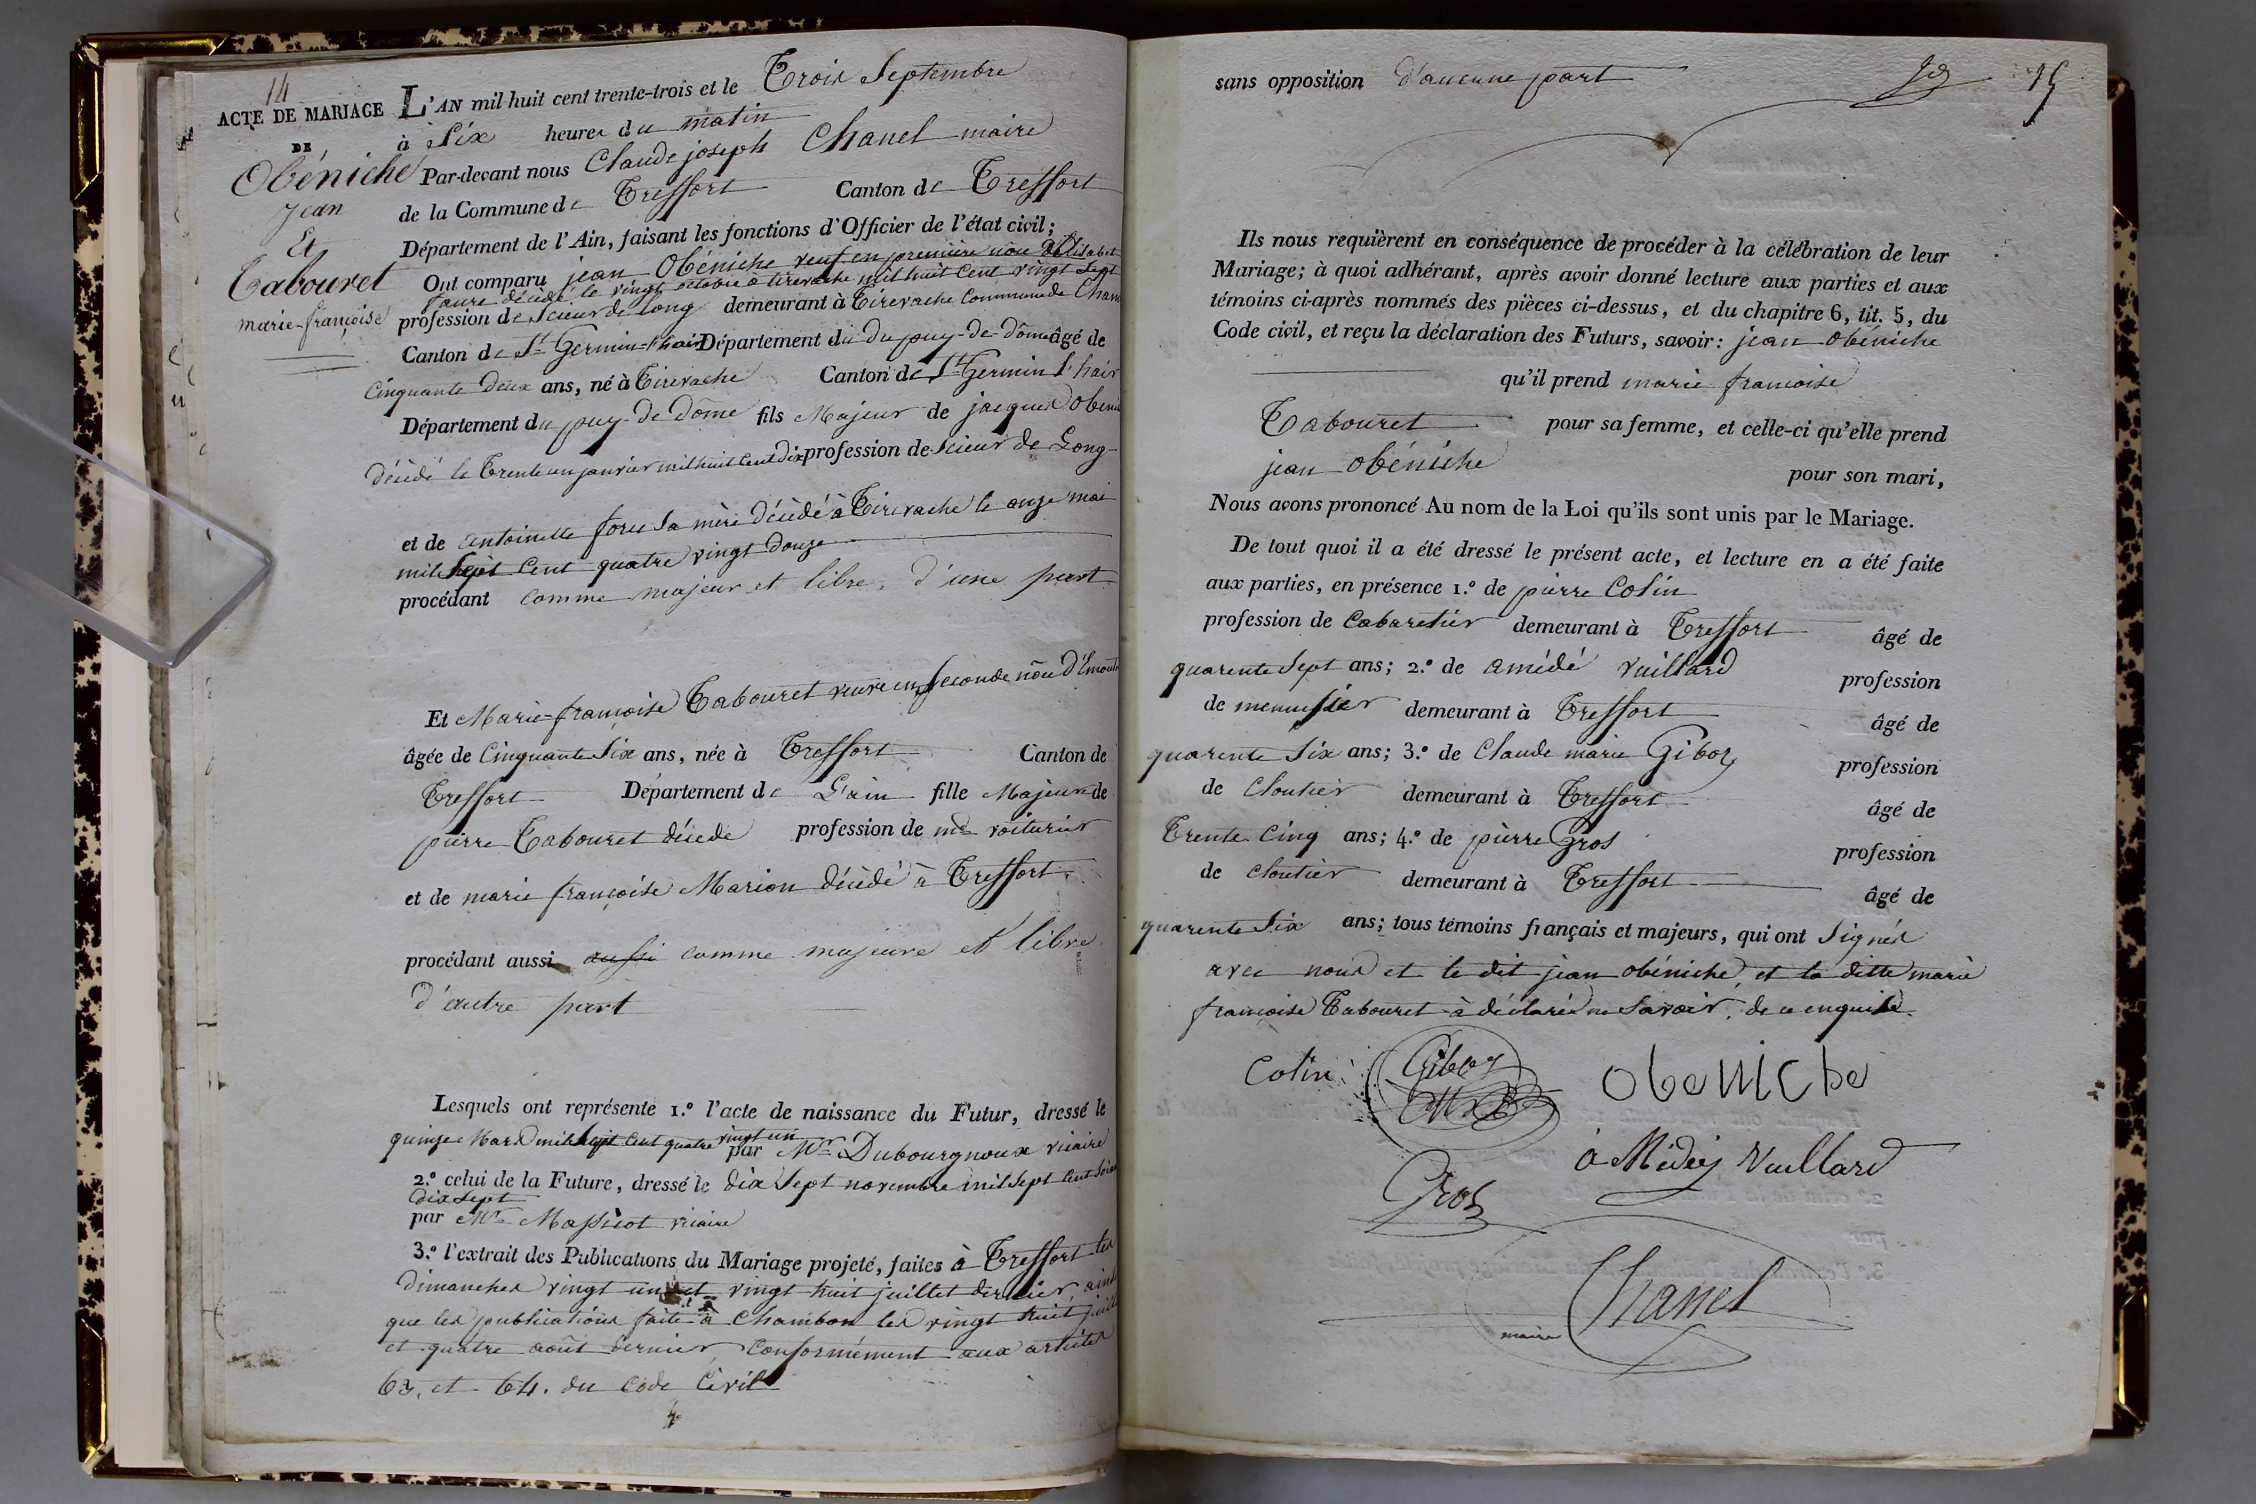 14
ACTE DE MARIAGE
DE
Obéniche
Jean
Et
Tabouret
marie-françoise
L'AN mil huit cent trente-trois et le Trois Septembre
à Six heures du matin
Par-devant nous Claude joseph Chanel maire
de la Commune de Treffort Canton de Treffort
Département de l'Ain, faisant les fonctions d'Officier de l'état civil;
Ont comparu jean Obéniche veuf en première nou
faure décédé le vingt octobre à tirevache mil huit cent vingt sept
profession de Scieur de long demeurant à Tirevache Commune de Cham
Canton de St Germin-l'hair Département du du puy-de-dôme âgé de
Cinquante deux ans, né à Tirevache Canton de St Germin l'hair
Département du puy-de-dôme fils Majeur de jacques obeni
décédé le Trente un janvier mil huit cent dix profession de Scieur de Long
et de antoinette forei sa mère décédé à Tirevache le onze mai
mil Sept Cent quatre vingt douze
procédant comme majeur et libre, d'une part
Et Marie-françoise Tabouret veuve en Seconde nou
âgée de Cinquante Six ans, née à Treffort Canton de
Treffort Département de L'ain fille Majeure de
pierre Tabouret décédé profession de md voiturier
et de marie françoise Marion décédé à Treffort
procédant aussi aussi comme majeure et libre
d'autre part
Lesquels ont représente 1.º l'acte de naissance du Futur, dressé le
quinze Mars mil Sept cent quatre vingt un par Mr Dubourgnoux vicaire
2.º celui de la Future, dressé le dix Sept novembre mil Sept Cent Soix
dix Sept
par Mr Massicot vicaire
3.º l'extrait des Publications du Mariage projeté, faites à Treffort les
dimanches vingt un et vingt huit juillet dernier, ains
que les publications faite à Chambon les vingt huit juill
et quatre août dernier Conformément aux articles
63. et 64. du Code Civil
sans opposition d'aucune part
15
Ils nous requièrent en conséquence de procéder à la célébration de leur
Mariage; à quoi adhérant, après avoir donné lecture aux parties et aux
témoins ci-après nommés des pièces ci-dessus, et du chapitre 6, tit. 5, du
Code civil, et reçu la déclaration des Futurs, savoir: jean obéniche
qu'il prend marie françoise
Tabouret pour sa femme, et celle-ci qu'elle prend
jean obéniche pour son mari,
Nous avons prononcé Au nom de la Loi qu'ils sont unis par le Mariage.
De tout quoi il a été dressé le présent acte, et lecture en a été faite
aux parties, en présence 1.º de pierre Colin
profession de Cabaretier demeurant à Treffort âgé de
quarente Sept ans; 2.º de amédé vuillard profession
de menuisier demeurant à Treffort âgé de
quarente Six ans; 3.º de Claude marie Giboz profession
de Cloutier demeurant à Treffort âgé de
Trente Cinq ans; 4.º de pierre Gros profession
de Cloutier demeurant à Treffort âgé de
quarente Six ans; tous témoins français et majeurs, qui ont Signés
avec nous et le dit jean obéniche, et la ditte marie
françoise Tabouret à déclaré ne Savoir, de ce enquise.
Colin Giboz obeniche
Gros à Médéy Vuillard
maire Chanel